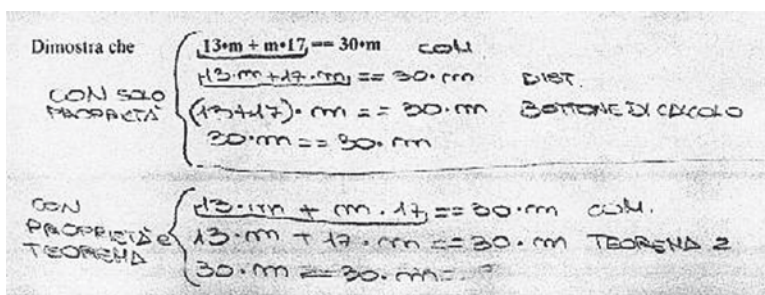 Dimostra che 13•m + m•17 == 30•m COM
CON SOLO PROPRIETÀ
13·m+17·m == 30·m DIST.
(13+17)·m == 30·m BOTTONE DI CALCOLO
30·m == 30·m
CON PROPRIETÀ e TEOREMA
13·m + m·17 == 30·m COM.
13·m + 17·m == 30·m TEOREMA 2
30·m == 30·m